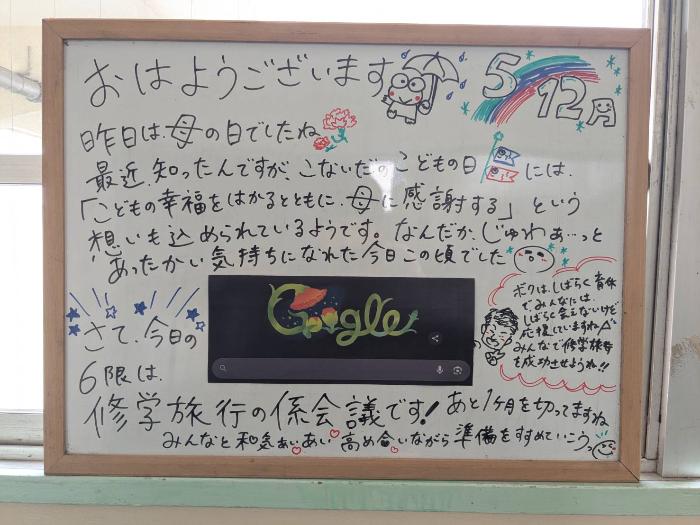 おはようございます
5/12月
昨日は、母の日でしたね
最近、知ったんですが、こないだのこどもの日には、
「こどもの幸福をはかるとともに、母に感謝する」という
想いも込められているようです。なんだか、じゅわぁ…っと
あったかい気持ちになれた今日この頃でした
Google
ボクは、しばらく育休
で、みんなには、
しばらく会えないけど
応援していますね
みんなで修学旅行
を成功させようね!!
さて、今日の
6限は、
修学旅行の係会議です!
あと1ヶ月を切ってますね
みんなと和気あいあい、高め合いながら準備をすすめていこう